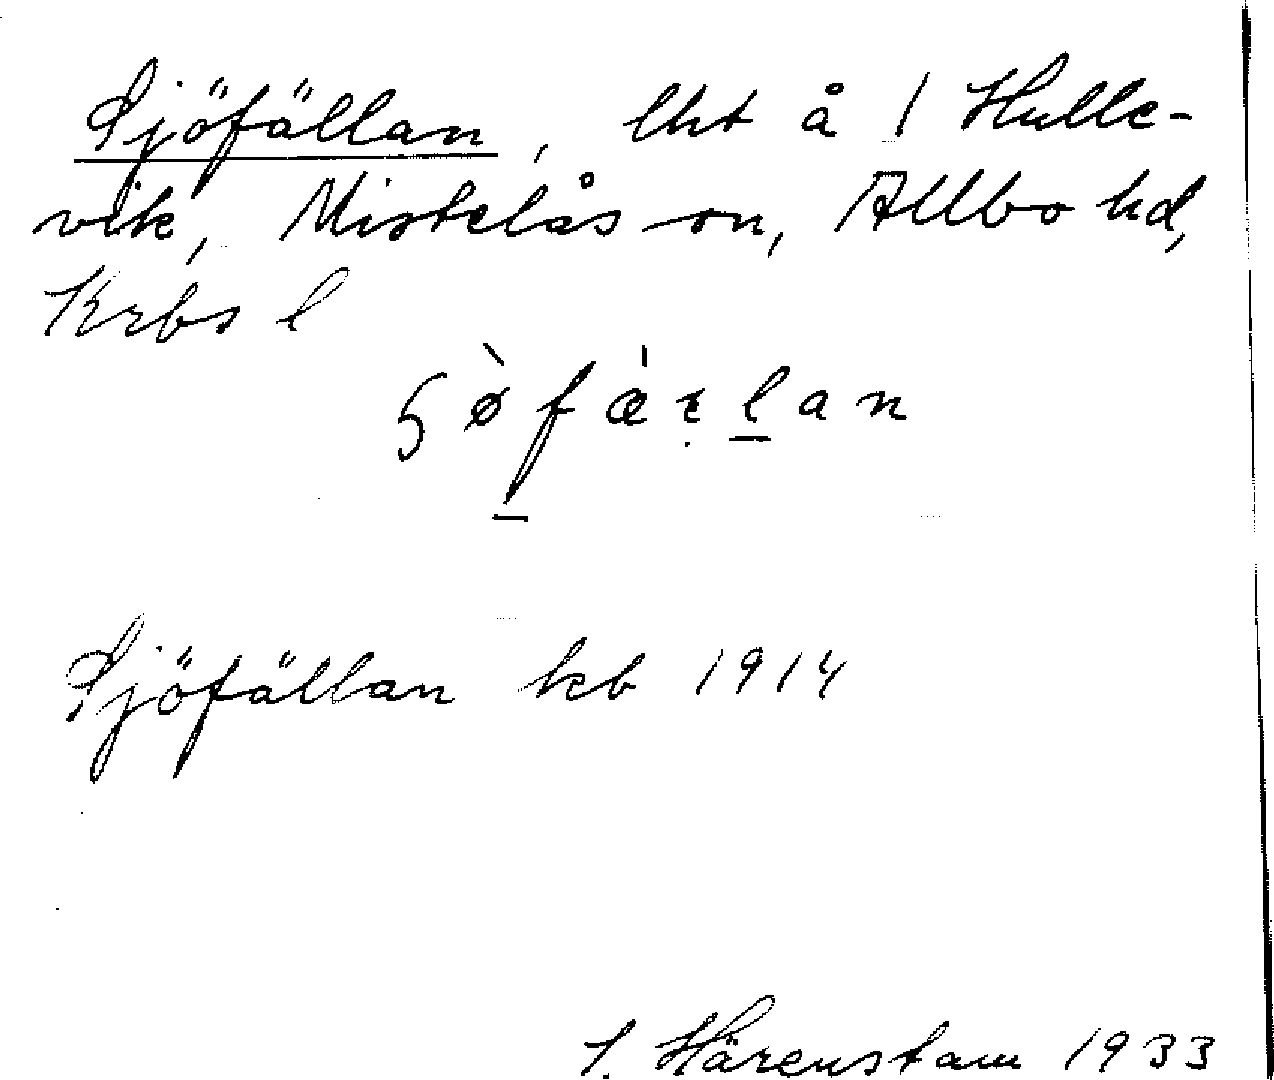 Sjöfällan, lht å 1 Hulle-
vik, Mistelås sn, Allbo hd,
Krbs l
Sjöfällan kb 1914
S. Härenstam 1933